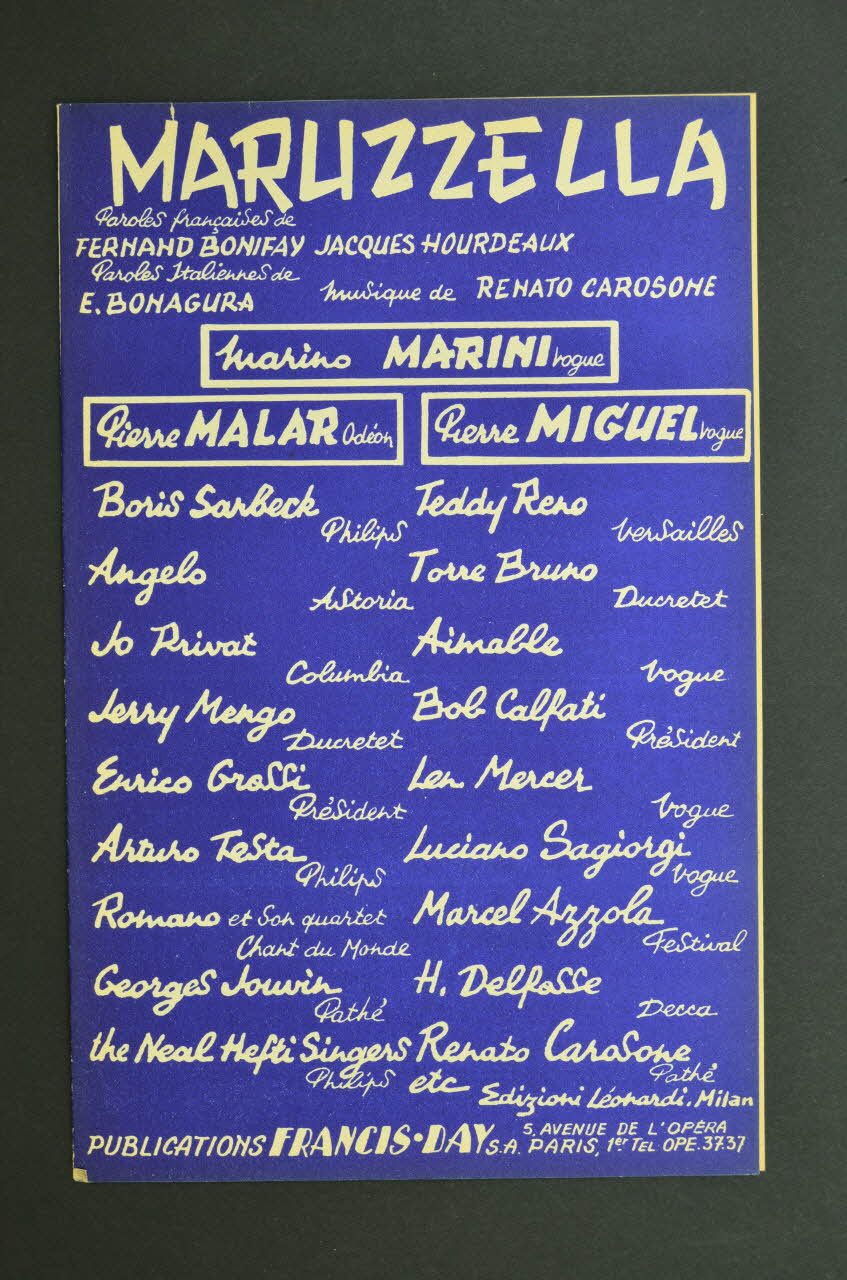 MARUZZELLA
Paroles françaises de
FERNAND BONIFAY JACQUES HOURDEAUX
Paroles Italiennes de
E. BONAGURA
musique de RENATO CAROSONE
Marino MARINI Vogue
Pierre MALAR Odéon
Pierre MIGUEL Vogue
Boris Sarbeck
Philips
Teddy Reno
Versailles
Angelo
Astoria
Torre Bruno
Ducretet
Jo Privat
Columbia
Aimable
Vogue
Jerry Mengo
Ducretet
Bob Calfati
Président
Enrico Grassi
Président
Len Mercer
Vogue
Arturo Testa
Philips
Luciano Sagiorgi
Vogue
Romano et Son quartet
Chant du Monde
Marcel Azzola
Festival
Georges Jouvin
Pathé
H. Delfosse
Decca
the Neal Hefti Singers
Philips
Renato CaroSone
Pathé
etc
Edizioni Léonardi. Milan
PUBLICATIONS FRANCIS·DAY S.A.
5, AVENUE DE L'OPÉRA
PARIS, 1er TEL OPE. 37.37